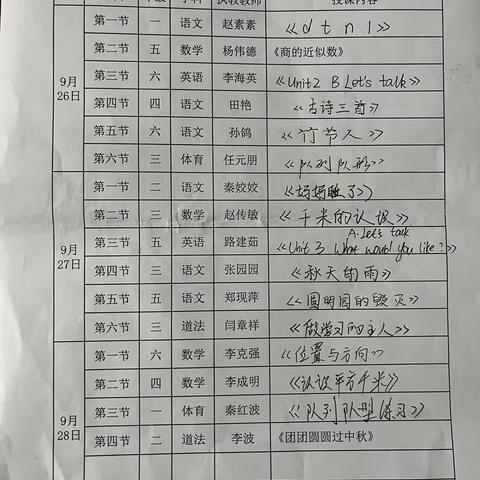 年级 学科 执教教师 授课内容
9月26日
第一节 一 语文 赵素素 《d t n l》
第二节 五 数学 杨伟德 《商的近似数》
第三节 六 英语 李海英 《Unit2 B Let's talk》
第四节 四 语文 田艳 《古诗三首》
第五节 六 语文 孙鸽 《竹节人》
第六节 三 体育 任元朋 《队列队形》
9月27日
第一节 二 语文 秦姣姣 《妈妈睡了》
第二节 三 数学 赵传敏 《千米的认识》
第三节 五 英语 路建茹 《Unit 3 What would you like?》 A. Let's talk
第四节 三 语文 张园园 《秋天的雨》
第五节 五 语文 郑现萍 《圆明园的毁灭》
第六节 三 道法 闫章祥 《做学习的主人》
9月28日
第一节 六 数学 李克强 《位置与方向》
第二节 四 数学 李成明 《认识平方千米》
第三节 一 体育 秦红波 《队列队型练习》
第四节 二 道法 李波 《团团圆圆过中秋》